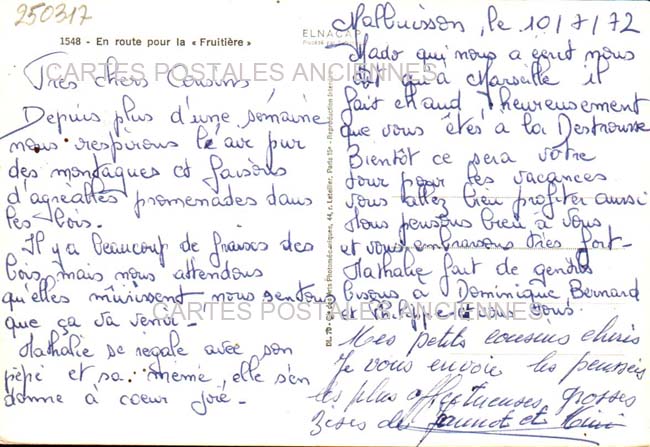 250317
1548 - En route pour la « Fruitière »
ELNACAP
CARTES POSTALES ANCIENNES
Très chers Cousins,
Depuis plus d'une semaine
nous respirons le air pur
des montagnes et faisons
d'agréables promenades dans
les bois.
Il y a beaucoup de fraises des
bois, mais nous attendons
qu'elles mûrissent nous sentons
que ça va venir -
Nathalie se régale avec son
pépé et sa mémé, elle s'en
donne à coeur joie -
Malbuisson, le 10/7/72
Mado qui nous a écrit nous
dit qu'à Marseille il
fait chaud, heureusement
que vous êtes à la Destrousse
Bientôt ce sera votre
tour pour les vacances
vous allez bien profiter aussi
Nous pensons bien à vous
et vous embrassons très fort -
Nathalie fait de gentils
bisous à Dominique Bernard
et Philippe et à vous.
CARTES POSTALES ANCIENNES
Mes petits cousins chéris
Je vous envoie les pensées
les plus affectueuses, grosses
bises de Jeannot et